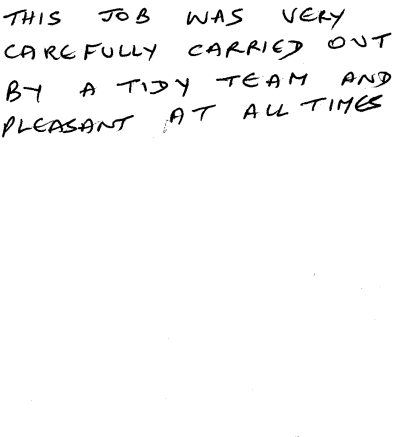 THIS JOB WAS VERY
CAREFULLY CARRIED OUT
BY A TIDY TEAM AND
PLEASANT AT ALL TIMES